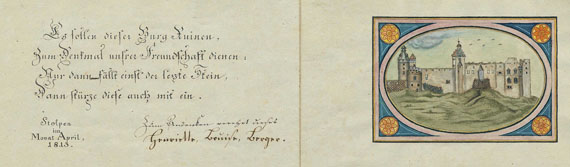 Es sollen dieser Burg Ruinen,
Zum Denkmal unsrer Freundschaft dienen,
Nur dann fällt einst der letzte Stein,
Dann stürze diese auch mit ein.
Stolpen
im
Monat April.
1813.
Zum Andenken weihet dieses
Henriette, Louise, Berger.